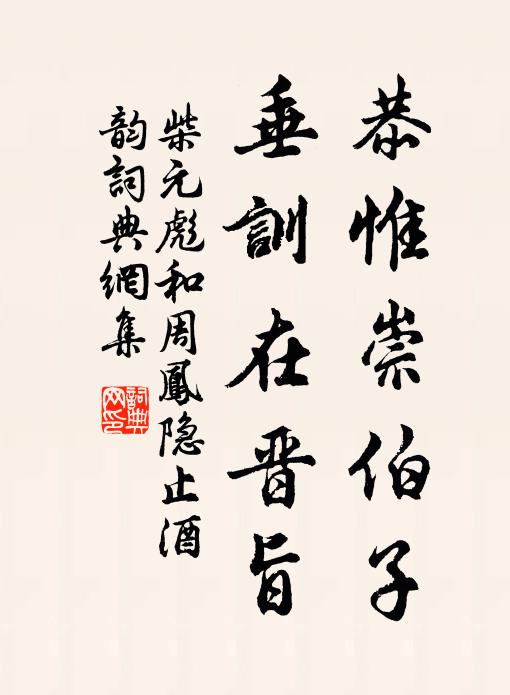 恭惟崇伯子
垂訓在晋旨
柴元彪和周鳳隐止酒
韵詞典網集
詞典
网印